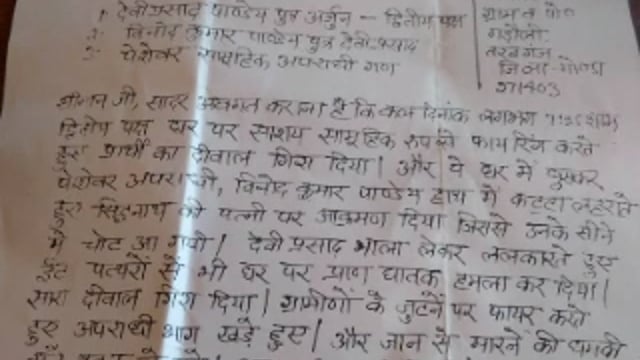 1. देवीप्रसाद पाण्डेय पुत्र अर्जुन — द्वितीय पक्ष
2. विनोद कुमार पाण्डेय पुत्र देवीप्रसाद
3. पेशेवर सामूहिक अपराधी गण
ग्राम व पो०
तरबगंज
जिला-गोण्डा
271403
श्रीमान जी, सादर अवगत कराना है कि कल दिनांक लगभग 7:25 शाम
द्वितीय पक्ष द्वार पर सामूहिक रूप से फायरिंग करते
हुए प्रार्थी का दीवाल गिरा दिया। और ये घर में घुसकर
पेशेवर अपराधी, विनोद कुमार पाण्डेय हाथ में कट्टा लहराते
हुए की पत्नी पर आक्रमण दिया जिससे उनके सीने
में चोट आ गयी। देवीप्रसाद भाला लेकर ललकारते हुए
ईंट पत्थरों से भी घर पर प्राण घातक हमला कर दिया।
सारा दीवाल गिरा दिया। ग्रामीणों के जुटने पर फायर करते
हुए अपराधी भाग खड़े हुए। और जान से मारने की धमकी